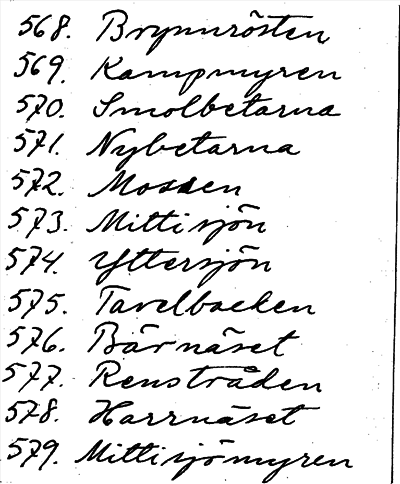 568. Brynnrösten
569. Kampmyren
570. Smolbetarna
571. Nybetarna
572. Mossen
573. Mittisjön
574. Yttersjön
575. Tavelbacken
576. Bärnäset
577. Renstråden
578. Harrnäset
579. Mittisjömyren